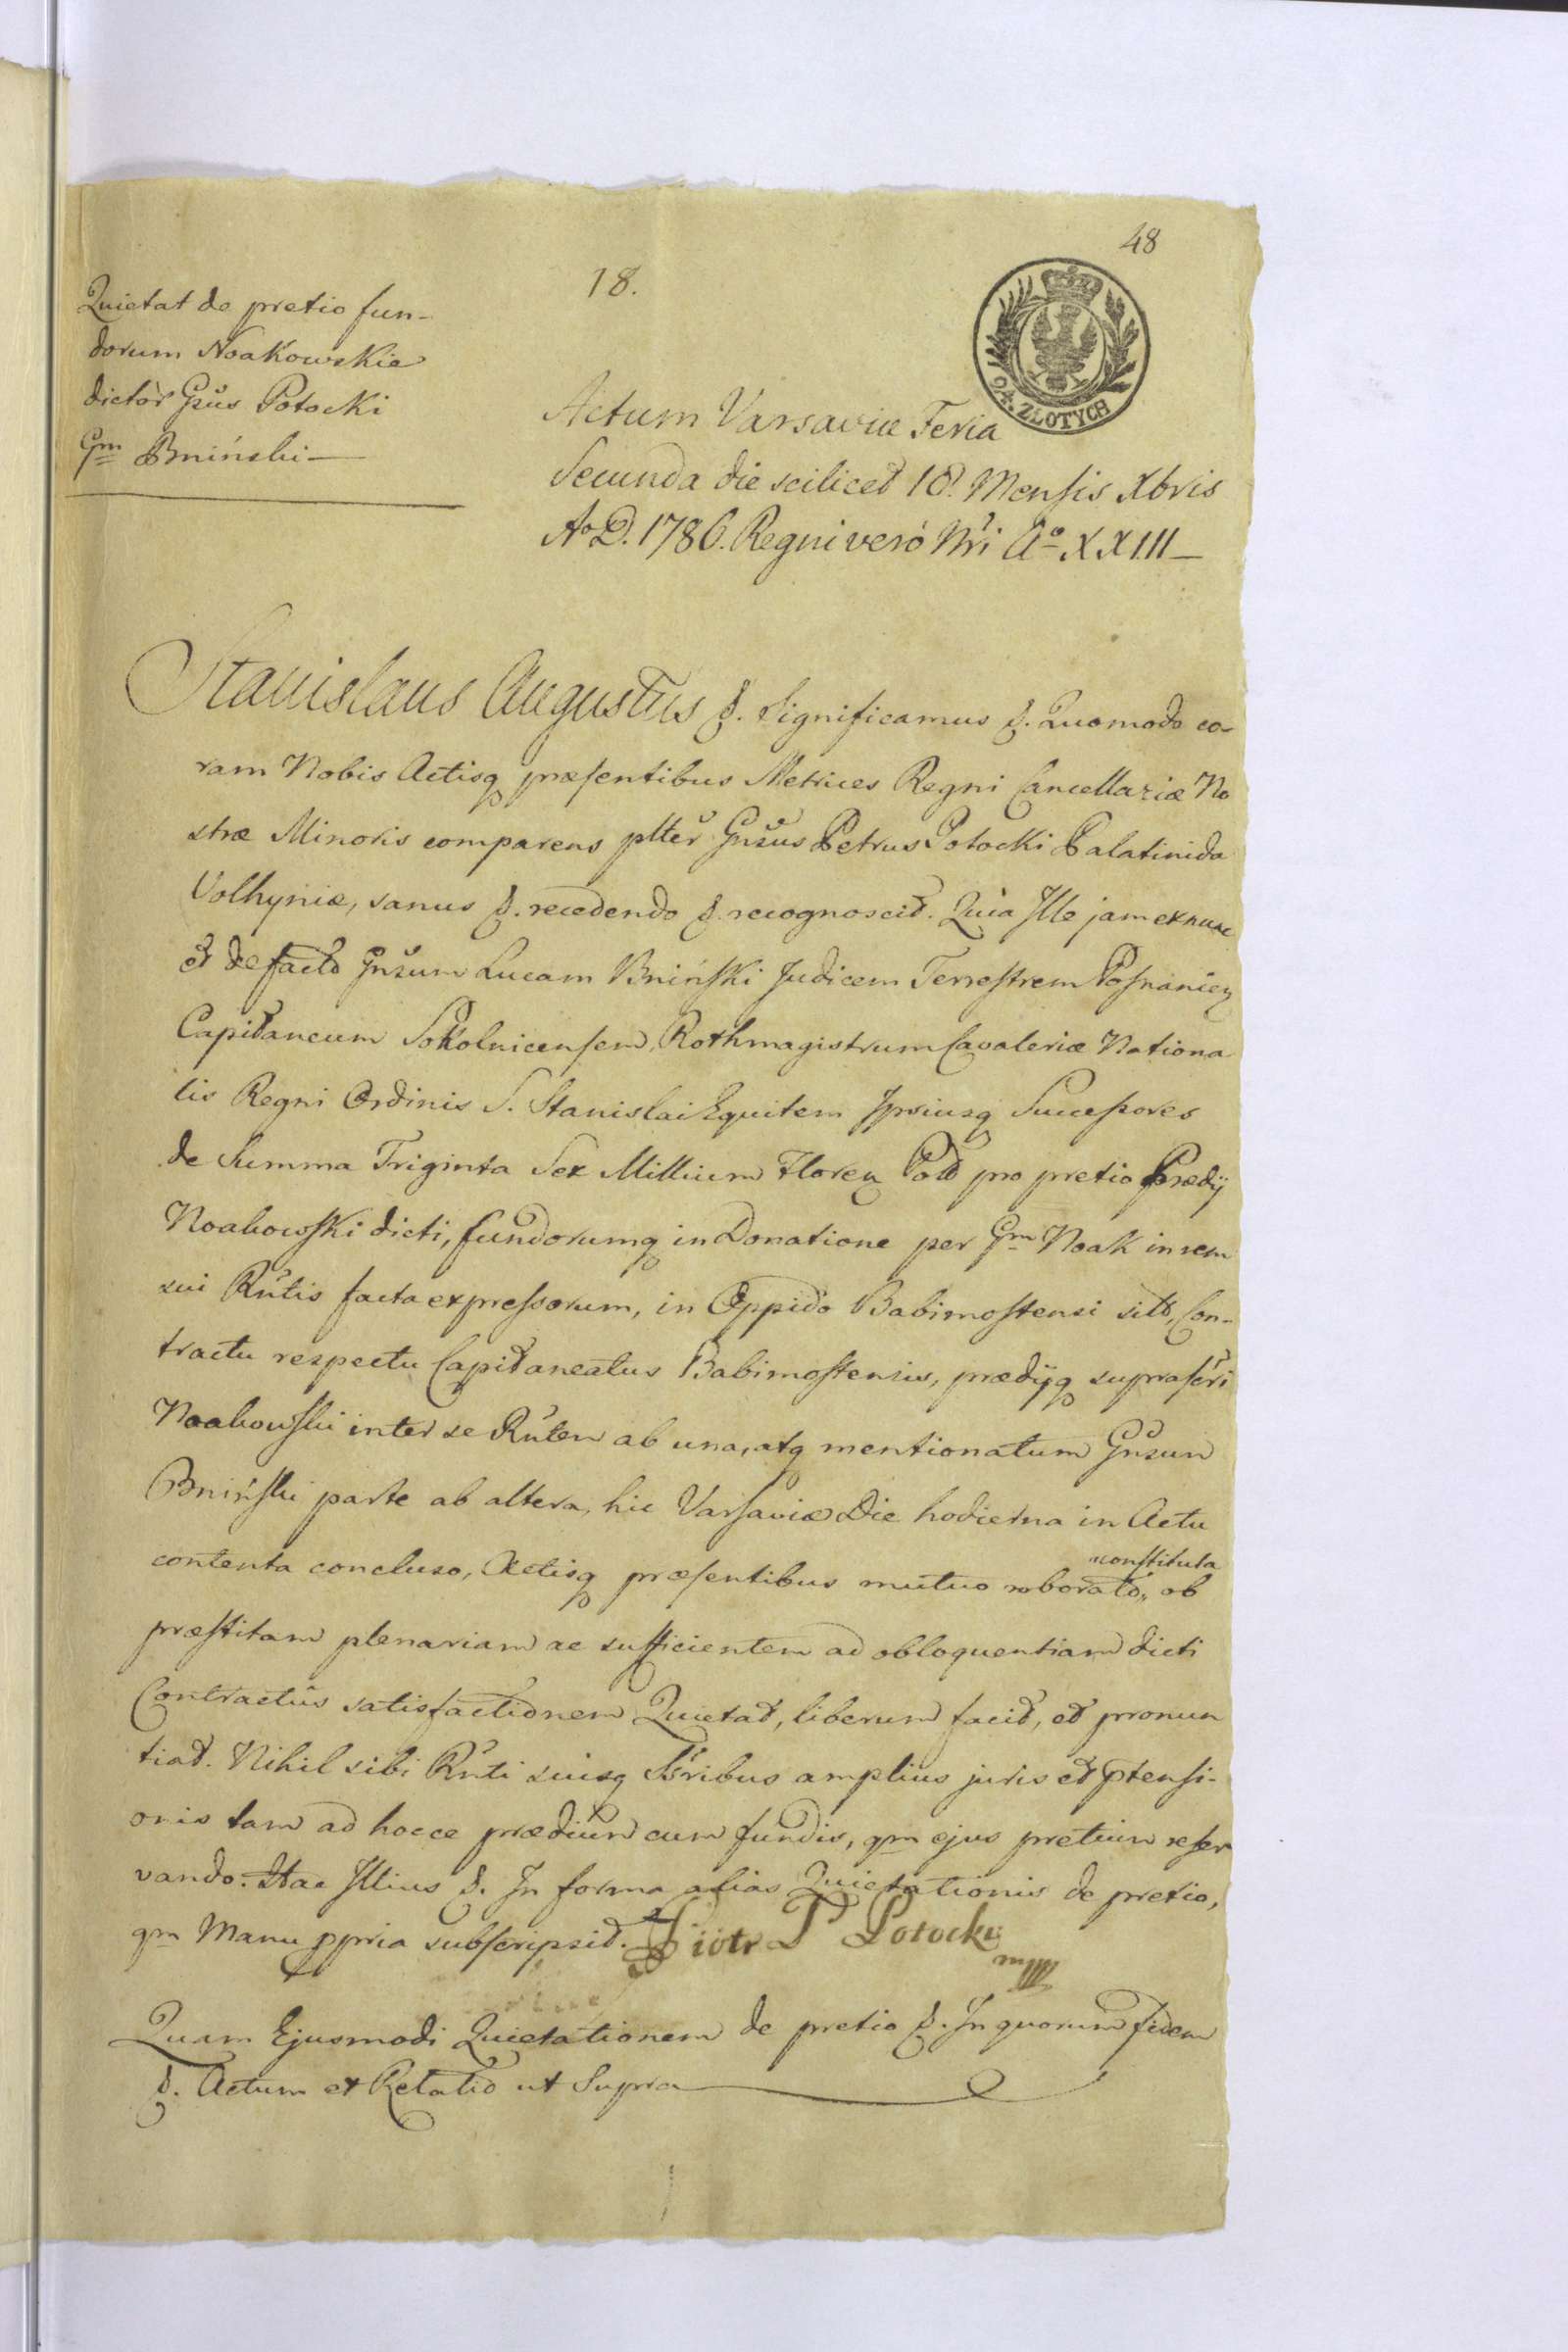 48
18.
Quietat de pretio fun-
dorum Noakowskie
dictor̃ Gsũs Potocki
Gm̃ Bniński —
24. ZŁOTYCH
Actum Varsaviæ Feria
Secunda die scilicet 18. Mensis Xbris
Aº D. 1786. Regni verò Nr̃i Aº XXIII —
Stanislaus Augustus &. Significamus &. Quomodo co-
ram Nobis Actisq præsentibus Metrices Regni Cancellariæ No
stræ Minoris comparens plter̃ Gnsũs Petrus Potocki Palatinida
Volhyniæ, sanus &. recedendo &. recognoscit. Quia Ille jam ex nunc
et de facto Gnsũm Lucam Bniński Judicem Terrestrem Posnanien
Capitaneum Sokolnicensem, Rothmagistrum Cavaleriæ Nationa
lis Regni Ordinis S. Stanislai Equitem Ipsiusq Successores
de Summa Triginta Sex Millium Floren Pol pro pretio Prædij
Noakowski dicti, fundorumq in Donatione per Gm̃ Noak in rem
sui Rñtis facta expressorum, in Oppido Babimostensi sito, Con-
tractu respectu Capitaneatus Babimostensis, prædijq suprascr̃i
Noakowski inter se Rñtem ab una, atq mentionatum Gnsũm
Bniński parte ab altera, hic Varsaviæ Die hodierna in Actu
contenta concluso, Actisq præsentibus mutuo roborato, ob
constituta
præstitam plenariam ac sufficientem ad obloquentiam dicti
Contractûs satisfactionem Quietat, liberum facit, et pronun
tiat. Nihil sibi Rñti suisq Ss̃ribus amplius juris et ptensi-
onis tam ad hocce prædium cum fundis, qm ejus pretium reser
vando. Hac Illius &. In forma alias Quietationis de pretio,
qm Manu ppria subscripsit. Piotr P Potocki
mp
Quam Ejusmodi Quietationem de pretio &. In quorum fidem
&. Actum et Relatio ut Supra